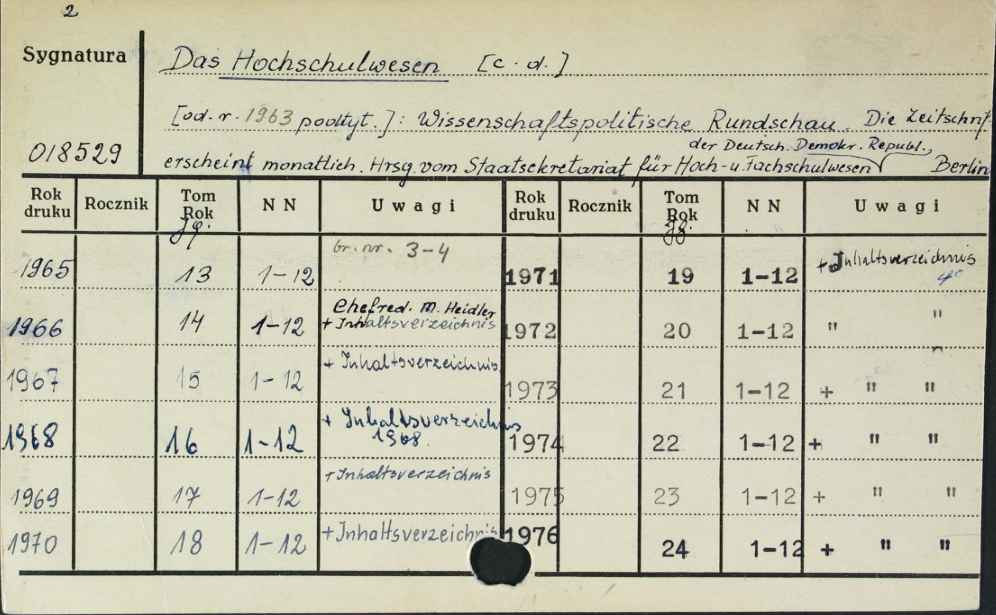 2
Sygnatura
Das Hochschulwesen [c.d.]
[od. r. 1963 podtyt.]: Wissenschaftspolitische Rundschau. Die Zeitschrift
der Deutsch. Demokr. Republ.,
018529
erscheint monatlich. Hrsg. vom Staatsekretariat für Hoch- u. Fachschulwesen Berlin
Rok druku Rocznik Tom Rok NN Uwagi Rok druku Rocznik Tom Rok NN Uwagi
Jg. Jg.
1965 13 1-12 br. nr. 3-4 1971 19 1-12 + Inhaltsverzeichnis
1966 14 1-12 Chefred. M. Heidler + Inhaltsverzeichnis 1972 20 1-12 " "
1967 15 1-12 + Inhaltsverzeichnis 1973 21 1-12 + " "
1968 16 1-12 + Inhaltsverzeichnis 1968. 1974 22 1-12 + " "
1969 17 1-12 + Inhaltsverzeichnis 1975 23 1-12 + " "
1970 18 1-12 + Inhaltsverzeichnis 1976 24 1-12 + " "